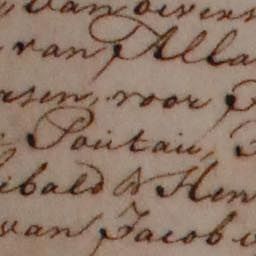 van divers
van Alla
rsen, voor
Poutau,
ibald & Hen
van Jacob